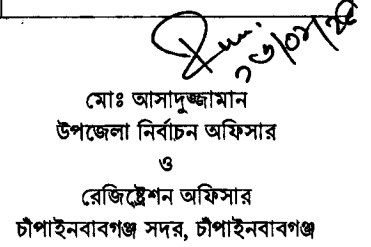 মোঃ আসাদুজ্জামান
উপজেলা নির্বাচন অফিসার
ও
রেজিষ্ট্রেশন অফিসার
চাঁপাইনবাবগঞ্জ সদর, চাঁপাইনবাবগঞ্জ